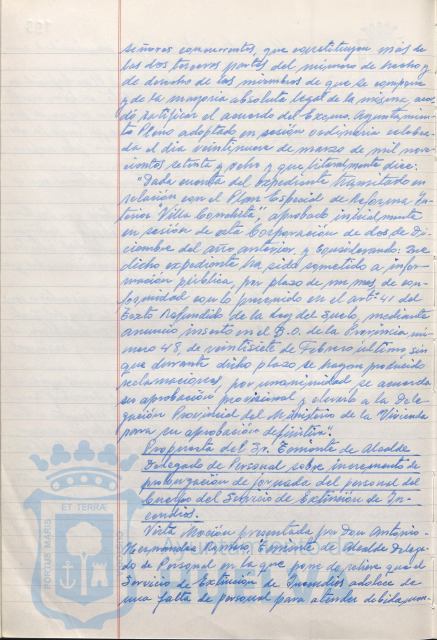 señores concurrentes, que constituyen más de
las dos terceras partes del número de hecho y
de derecho de los miembros de que se compone
y de la mayoría absoluta legal de la misma, acor
dó ratificar el acuerdo del Excmo. Ayuntamien
to Pleno adoptado en sesión ordinaria celebra
da el día veintinueve de marzo de mil nove
cientos setenta y ocho y que literalmente dice:
"Dada cuenta del expediente tramitado en
relación con el Plan Especial de Reforma In
terior Villa Conchita", aprobado inicialmente
en sesión de esta Corporación de dos de Di
ciembre del año anterior y Considerando: Que
dicho expediente ha sido sometido a infor
mación pública, por plazo de un mes, de con
formidad con lo prevenido en el artº 41 del
Texto Refundido de la Ley del Suelo, mediante
anuncio inserto en el B.O. de la Provincia nú
mero 48, de veintisiete de Febrero último, sin
que durante dicho plazo se hayan producido
reclamaciones, por unanimidad se acuerda
su aprobación provisional y elevarlo a la Dele
gación Provincial del Ministerio de la Vivienda
para su aprobación definitiva".
Propuesta del Sr. Teniente de Alcalde
Delegado de Personal sobre incremento de
prolongación de jornada del personal del
Cuerpo del Servicio de Extinción de In-
cendios.
Vista Moción presentada por Don Antonio
Hernández Ramero, Teniente de Alcalde Delega
do de Personal en la que pone de relieve que el
Servicio de Extinción de Incendios adolece de
una falta de personal para atender debidamen-
ET TERRA
PORTUS MARIS